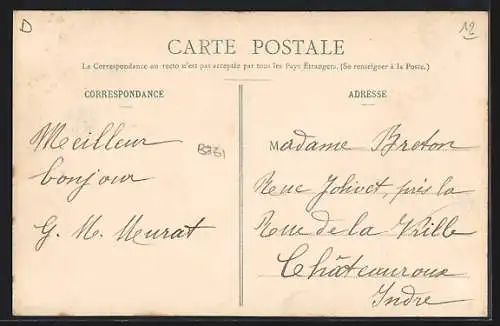 D
12
CARTE POSTALE
La Correspondance au recto n'est pas acceptée par tous les Pays Étrangers. (Se renseigner à la Poste.)
CORRESPONDANCE
Meilleur
bonjour
G. M. Meurat
B731
ADRESSE
Madame Breton
Rue Jolivet, près la
Rue de la Vrille
Châteauroux
Indre